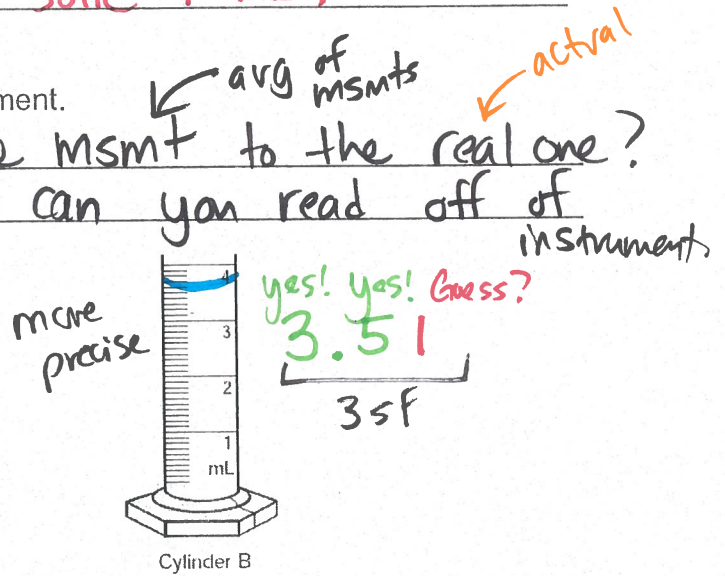 avg of msmts
actual
ment.
msmt to the real one?
can you read off of
instrument
more precise
yes! yes! Guess?
3.51
3 sf
4
3
2
1
mL
Cylinder B